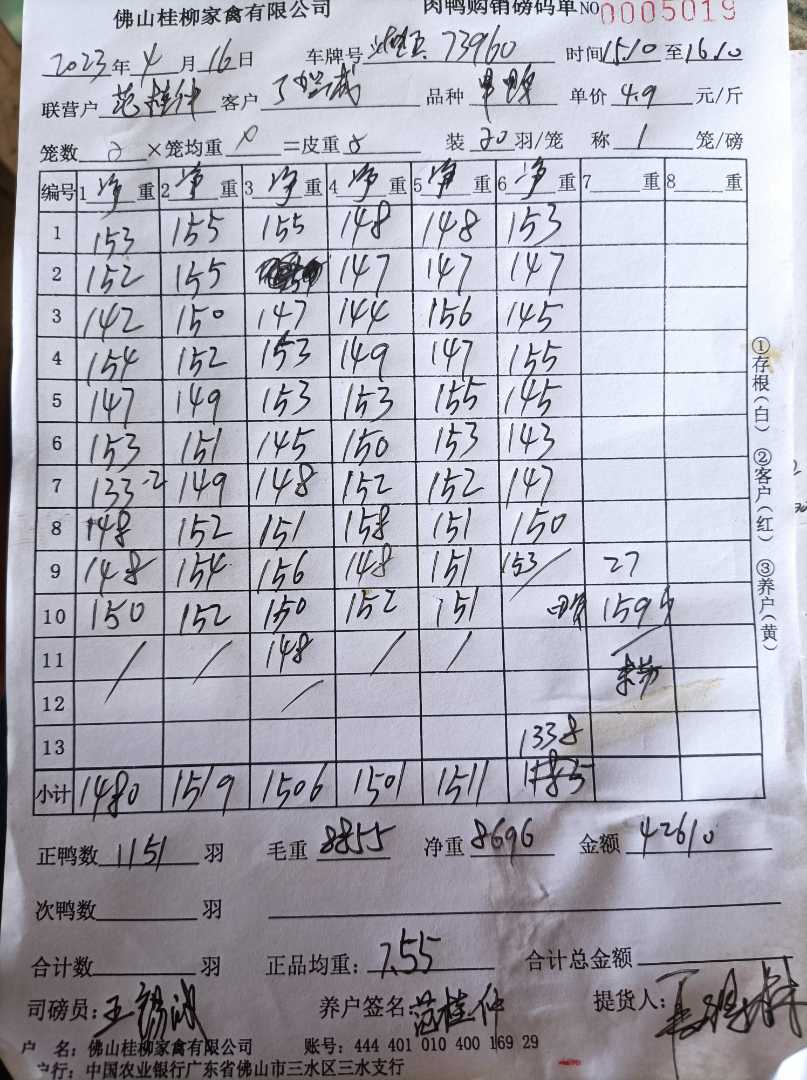 佛山桂柳家禽有限公司 肉鸭购销磅码单 NO 0005019
2023年 4月 16日 车牌号 73960 时间 15.10 至 16.10
联营户 范桂仲 客户 品种 单价 4.9 元/斤
笼数 ×笼均重 =皮重 装 20 羽/笼 称 1 笼/磅
编号 1 净 重 2 净 重 3 净 重 4 净 重 5 净 重 6 净 重 7 重 8 重
1 153 155 155 148 148 153
2 152 155 147 147 147
3 142 150 147 144 156 145
4 154 152 153 149 147 155
5 147 149 153 153 155 145
6 153 151 145 150 153 143
7 133-2 149 148 152 152 147
8 148 152 151 158 151 150
9 148 154 156 148 151 153 27
10 150 152 150 152 151
11 148
12
13 1338
小计 1480 1519 1506 1501 1511
正鸭数 1151 羽 毛重 8855 净重 8696 金额 42610
次鸭数 羽
合计数 羽 正品均重: 7.55 合计总金额
司磅员: 王锡 养户签名: 范桂仲 提货人:
户 名: 佛山桂柳家禽有限公司 账号: 444 401 010 400 169 29
户行: 中国农业银行广东省佛山市三水区三水支行
①存根(白) ②客户(红) ③养户(黄)